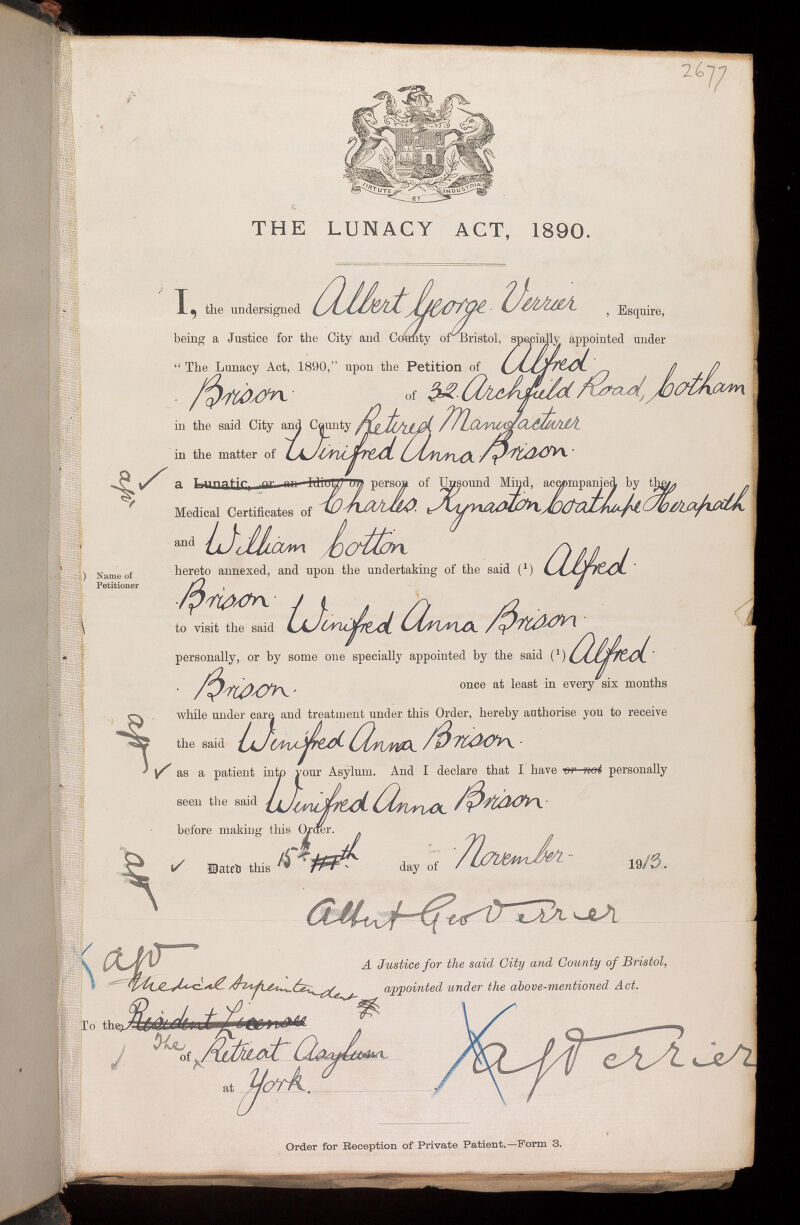 2677
VIRTUTE ET INDUSTRIA
THE LUNACY ACT, 1890.
I, the undersigned Albert George Verrier , Esquire,
being a Justice for the City and County of Bristol, specially appointed under
"The Lunacy Act, 1890," upon the Petition of Alfred
Brison of 32 Archfield Road, Cotham
in the said City and County Retired Manufacturer
in the matter of Winifred Anna Brison
a Lunatic, or an Idiot, or person of Unsound Mind, accompanied by the
Medical Certificates of Charles Kynaston Coathupe Herapath
and William Cotton
hereto annexed, and upon the undertaking of the said (¹) Alfred
) Name of
Petitioner
Brison
to visit the said Winifred Anna Brison
personally, or by some one specially appointed by the said (¹) Alfred
Brison. once at least in every six months
while under care and treatment under this Order, hereby authorise you to receive
the said Winifred Anna Brison.
as a patient into your Asylum. And I declare that I have or not personally
seen the said Winifred Anna Brison
before making this Order.
Dated this 15th day of November 1913.
Albert Geo Verrier
A Justice for the said City and County of Bristol,
appointed under the above-mentioned Act.
AGV
Medical Superintendent of
To the Resident Licensee
The
of Retreat Asylum
at York.
AGVerrier
Order for Reception of Private Patient.—Form 3.